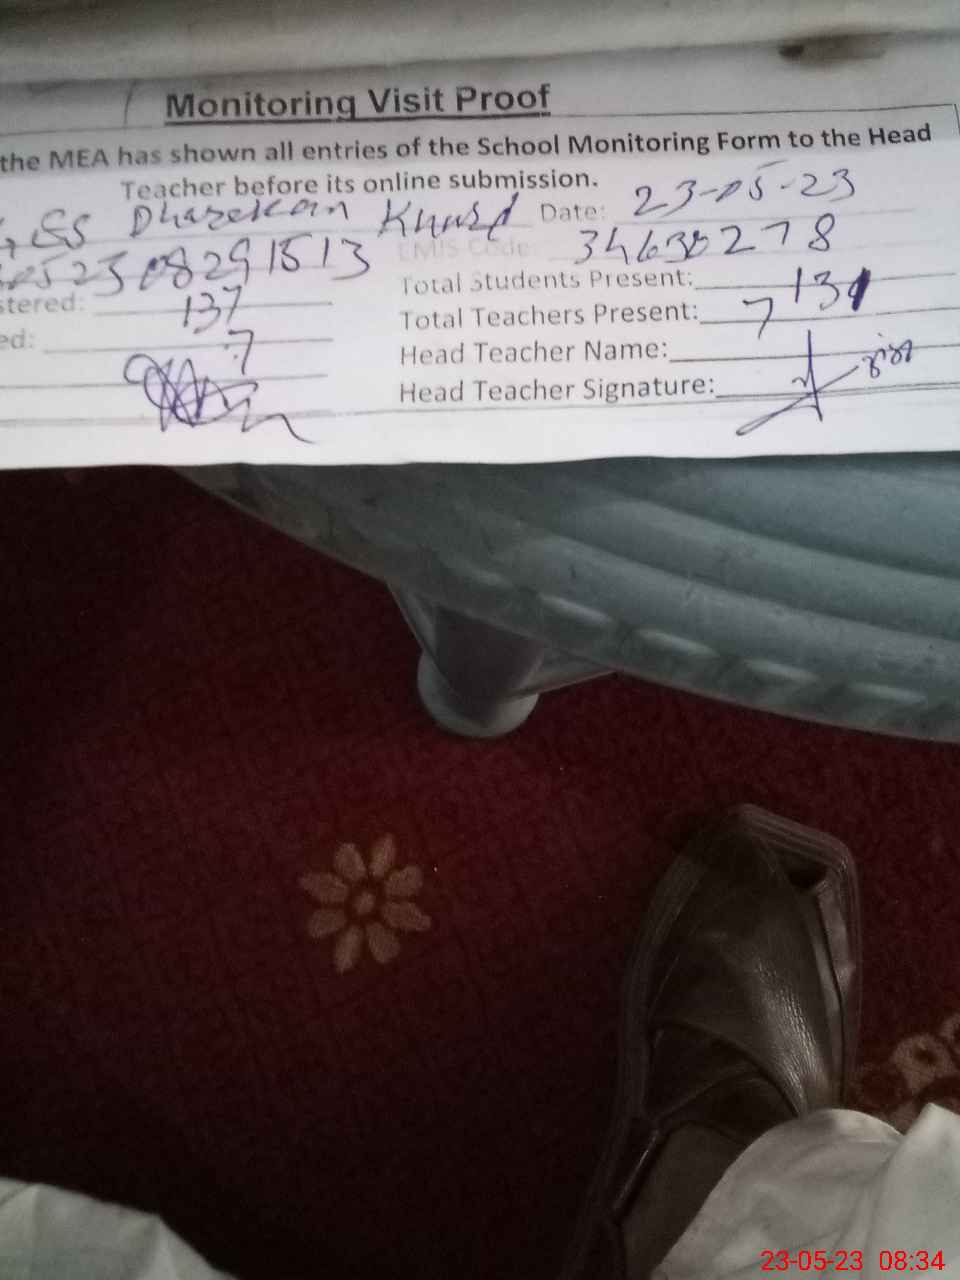 Monitoring Visit Proof
the MEA has shown all entries of the School Monitoring Form to the Head
Teacher before its online submission.
SS Dharekan Khurd Date: 23-05-23
230829 1513 EMIS Code: 34630278
stered: 137 Total Students Present: 131
ed: 7 Total Teachers Present: 7
Head Teacher Name:
Head Teacher Signature:
23-05-23 08:34